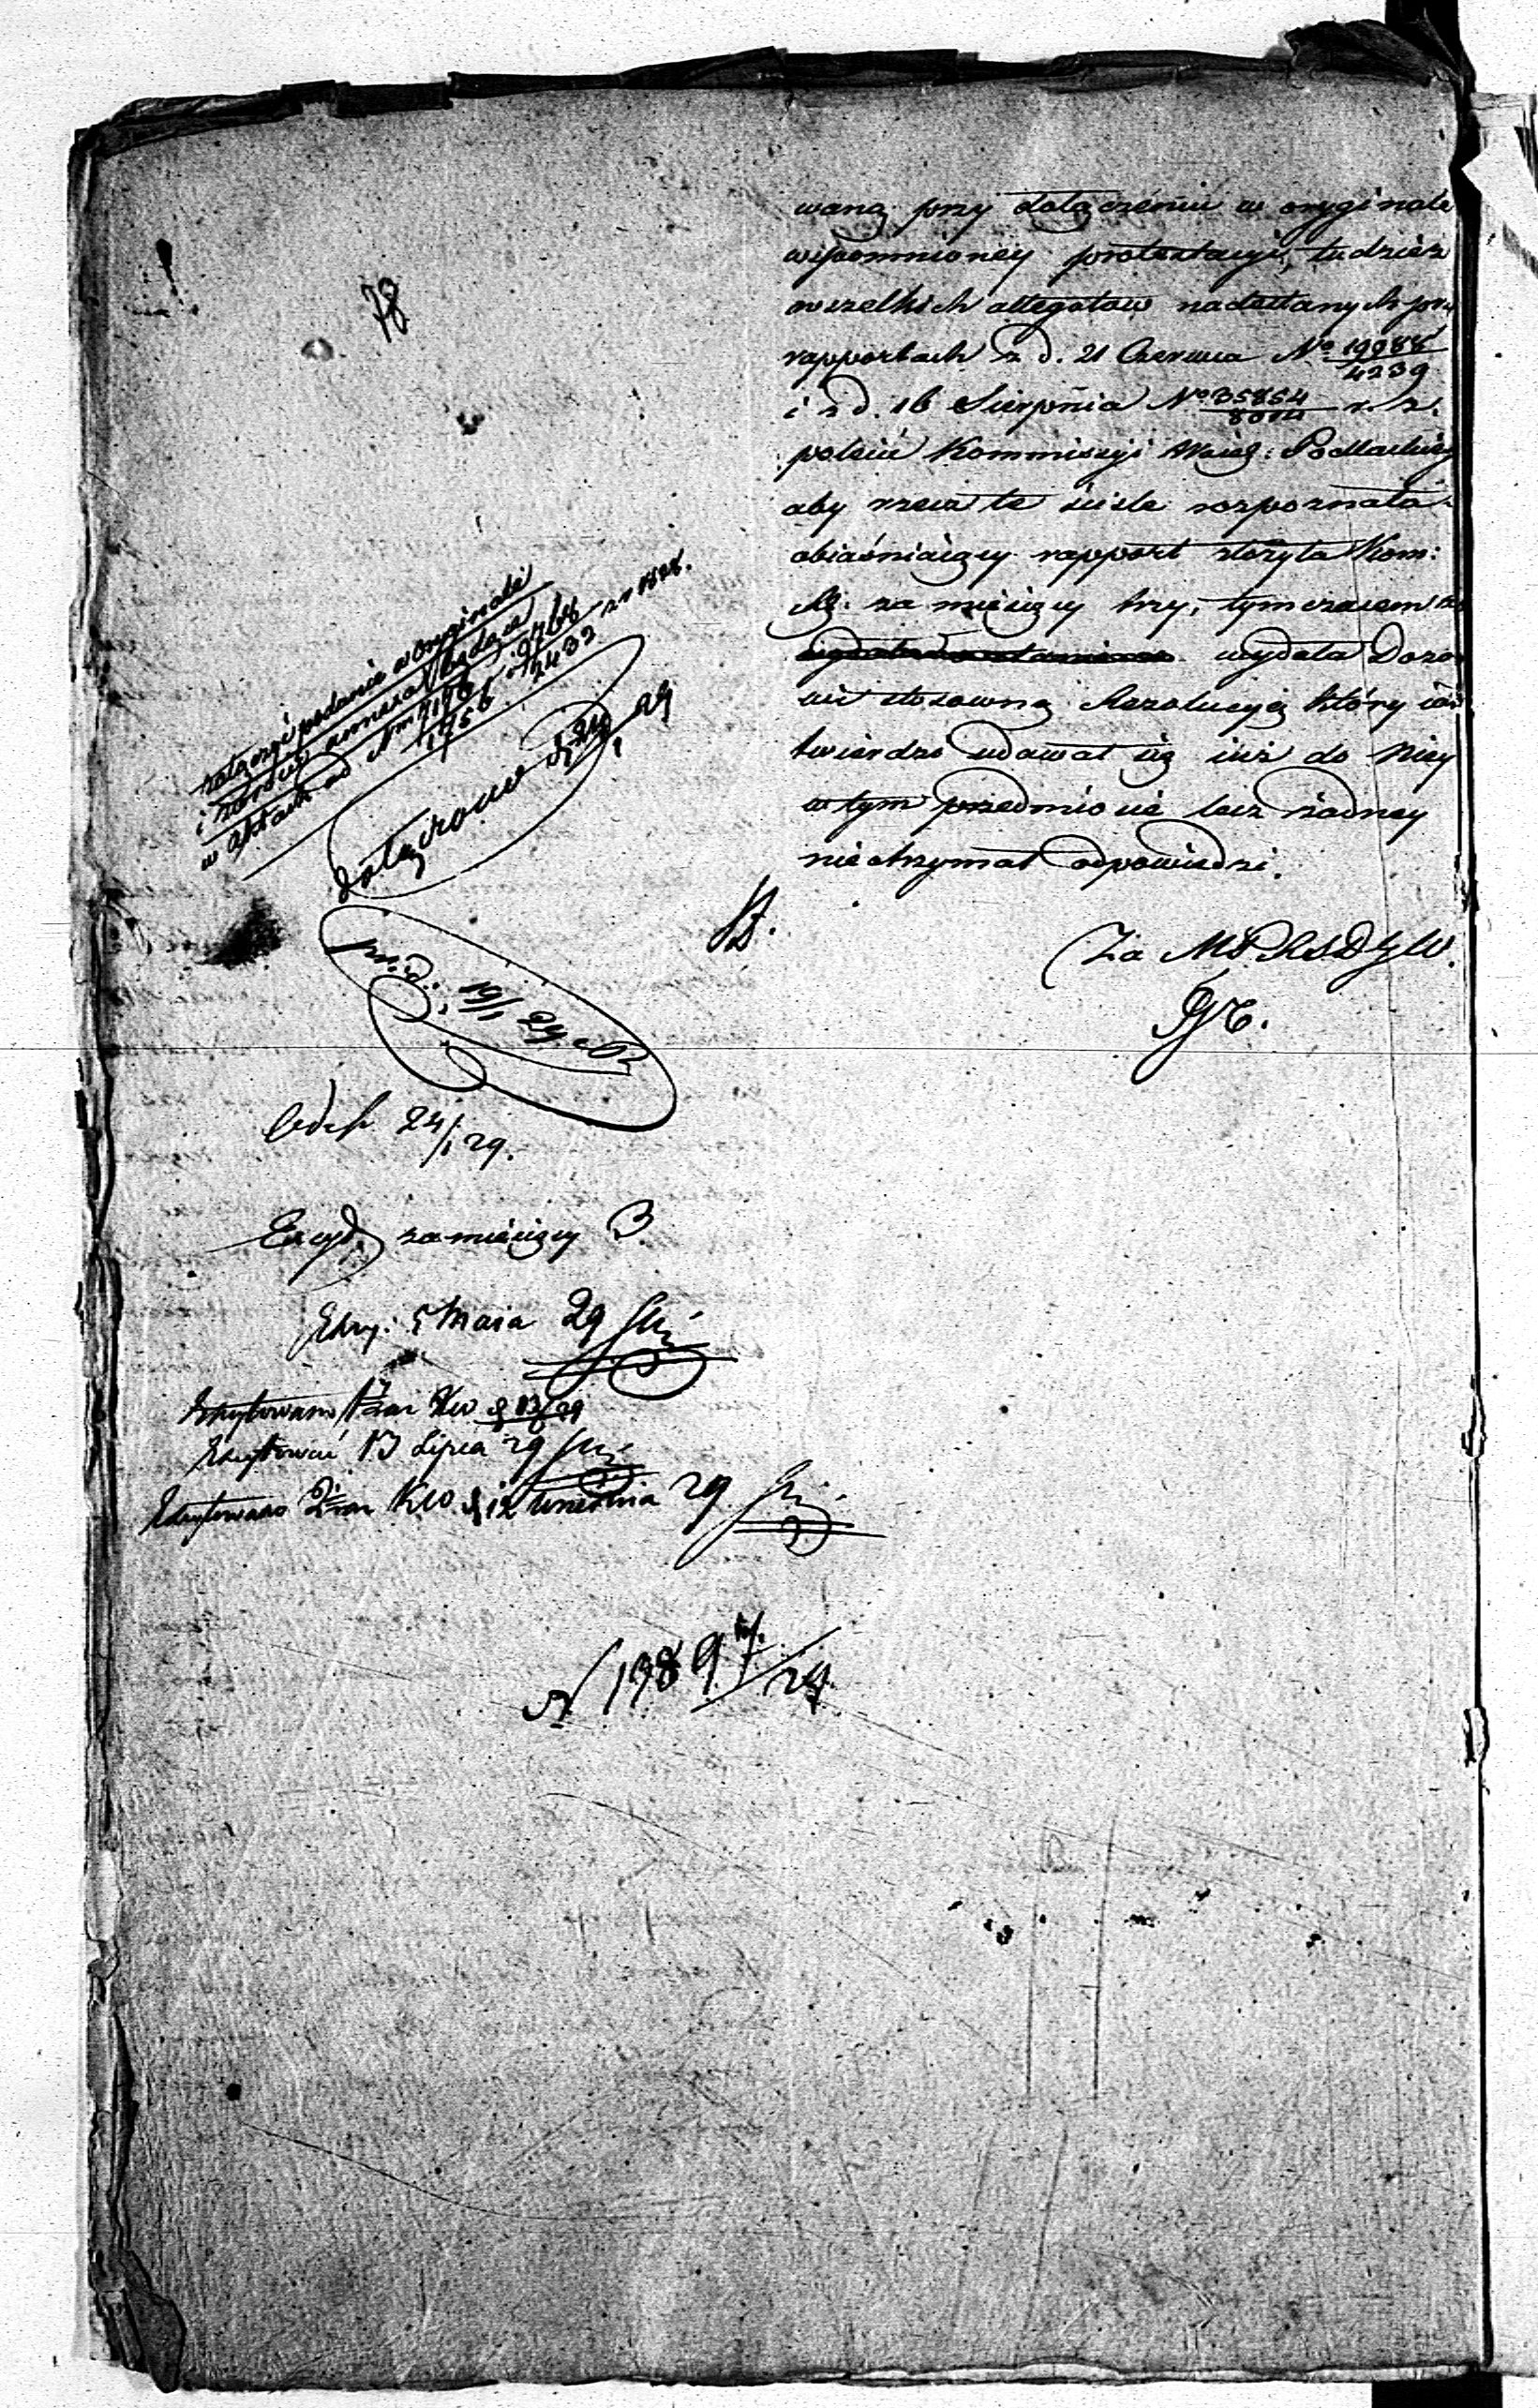 waną przy dołączeniu w oryginale
wspomnioney protestacyi, tudzież
wszelkich allegatow nadesłanych przy
rapportach z d. 21 Czerwca No 19988/4239
i z d. 16 Sierpnia No 35854/8014 r. z.
poleci Kommissyi Woiew: Podlaskiey
aby rzecz tę ściśle rozpoznała
obiaśniaiący rapport złożyła Kom:
Rz. za miesięcy trzy, tymczasem
wydała Dozo
wi stosowną Rezolucyą który
twierdzi udawał się iuż do Niey
w tym przedmiocie lecz żadney
nie otrzymał odpowiedzi.
Za M P R S D G W.
78
załączyć podanie w Oryginale
w Aktach pod Nrm 7196/1756 i 9768/2432 z r 1828.
dołączono d 24/1 29
pr. d. 19/1 29
24/1 29.
Excyt. za miesięcy 3
Excy: 5 Maia 29
Excytowano 1 raz KW d 13/5 29
Excytować 13 Lipca 29
Excytowano 2 raz KW. d 12 Września 29
N 19897/29.